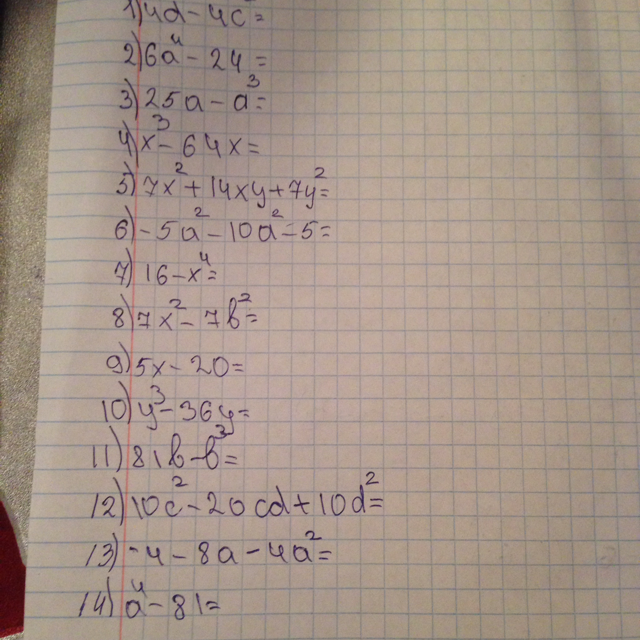 1) 4d - 4c² =
2) 6a⁴ - 24 =
3) 25a - a³ =
4) x³ - 64x =
5) 7x² + 14xy + 7y² =
6) -5a² - 10a² - 5 =
7) 16 - x⁴ =
8) 7x² - 7b² =
9) 5x - 20 =
10) y³ - 36y =
11) 81b - b³ =
12) 10c² - 20cd + 10d² =
13) -4 - 8a - 4a² =
14) a⁴ - 81 =